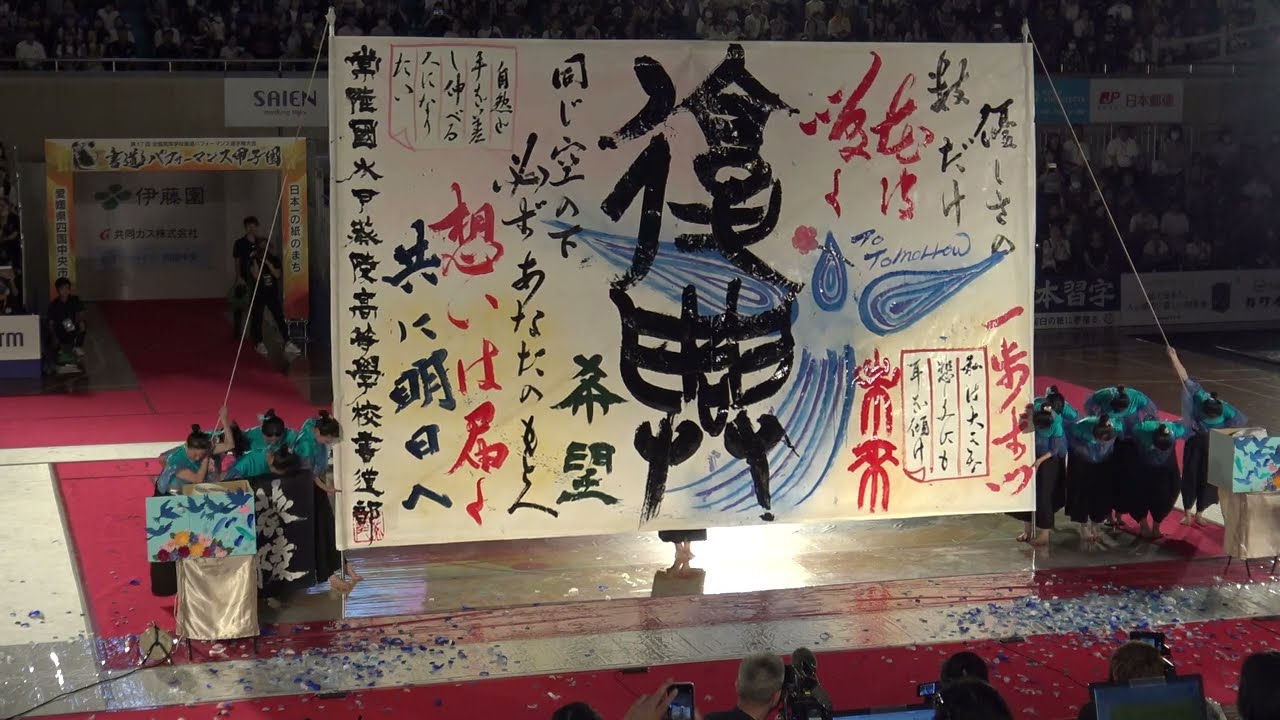 SAIEN
日本郵便
第17回 全国高等学校書道パフォーマンス選手権大会
書道パフォーマンス甲子園
愛媛県四国中央市
日本一の紙のまち
伊藤園
共同ガス株式会社
本習字
優しさの
数だけ
花は
咲く
To
Tomorrow
一歩ずつ
私は大きな
悲しみにも
耳を傾け
未来
復興
希望
同じ空の下
必ずあなたのもとへ
想いは届く
共に明日へ
自然と
手を差
し伸べる
人になり
たい
常陸國水戸葵陵高等學校書道部
葵陵